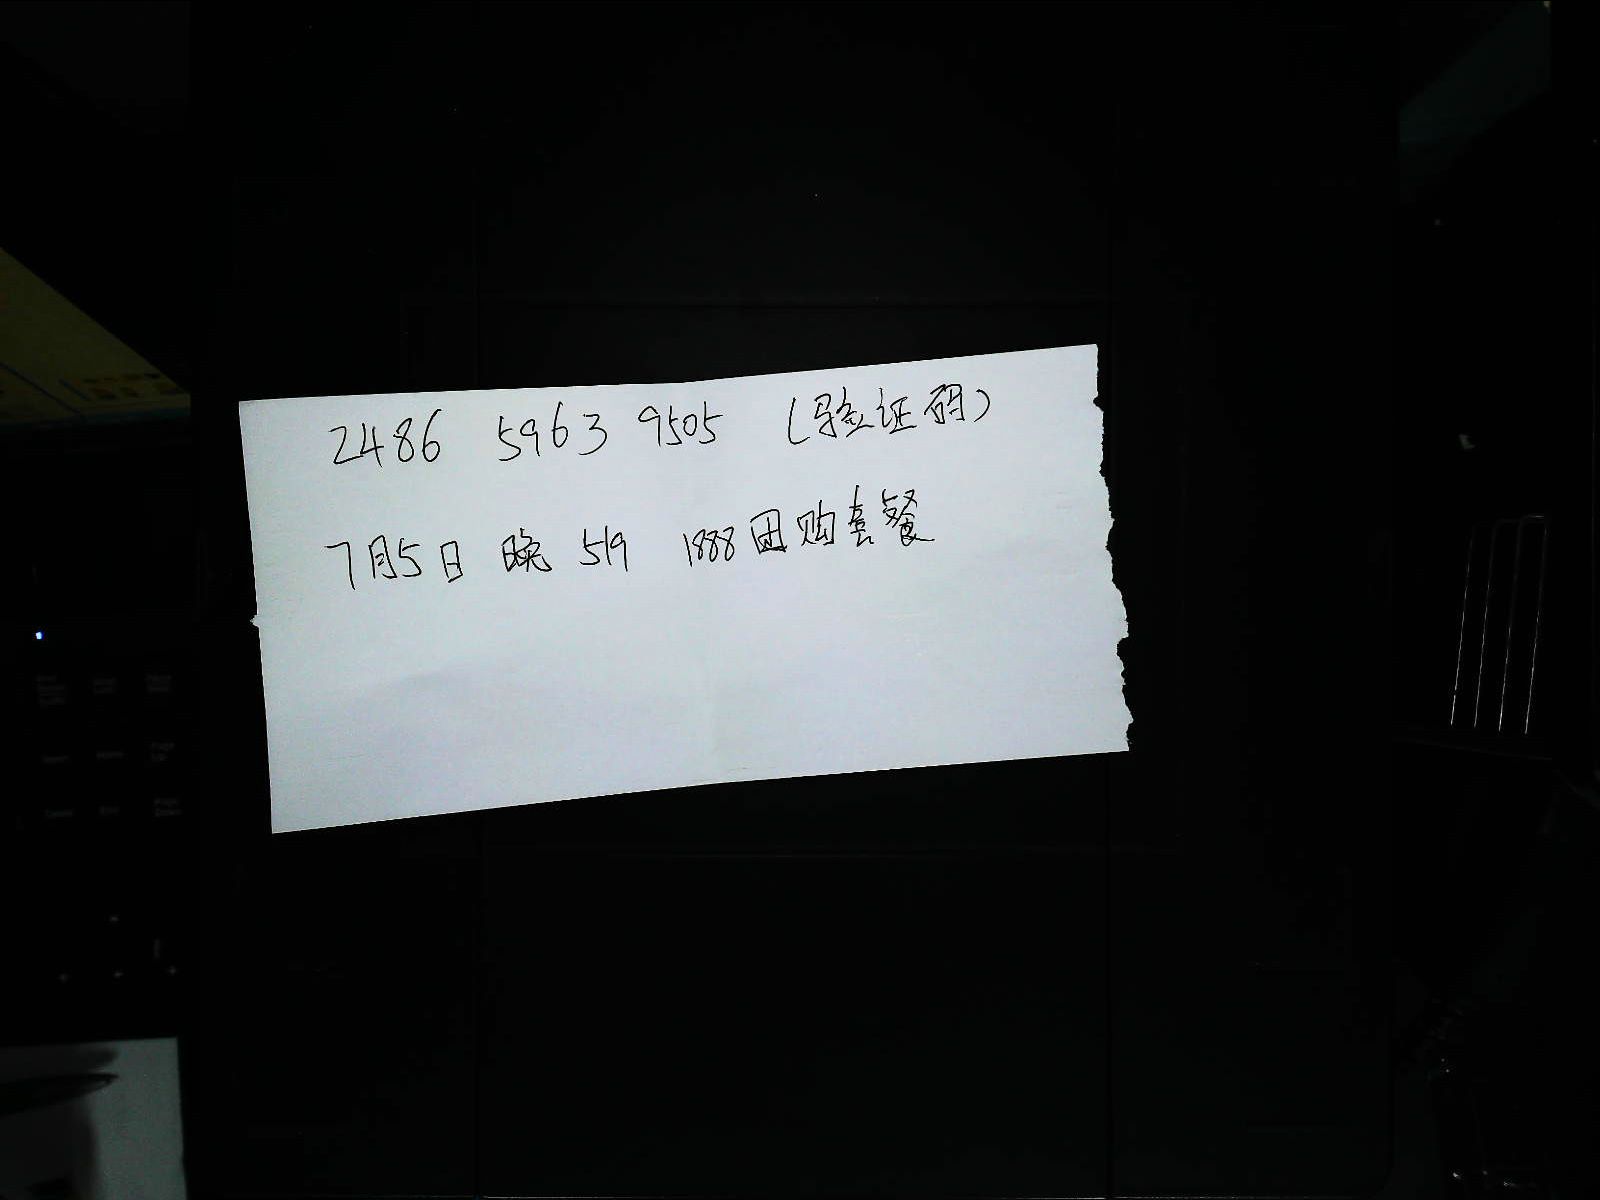 2486 5963 9505 (验证码)
7月5日 晚 519 1888团购套餐